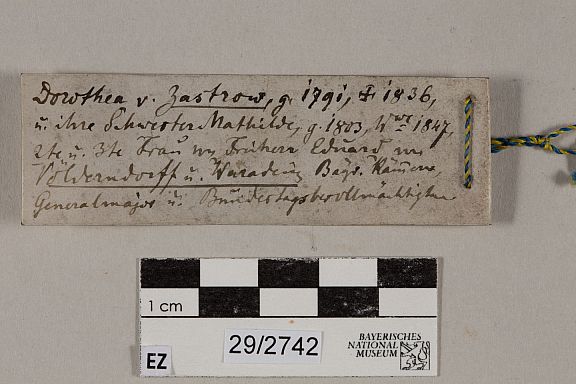 Dorothea v. Zastrow, g. 1791, † 1836,
u. ihre Schwester Mathilde, g. 1803, Wwe 1847,
2te u. 3te Frau v. Freiherr Eduard v.
Völderndorff u. Waradein, Bayr. Kämm.,
Generalmajor u. Bundestagsbevollmächtigter
1 cm
EZ
29/2742
BAYERISCHES
NATIONAL
MUSEUM